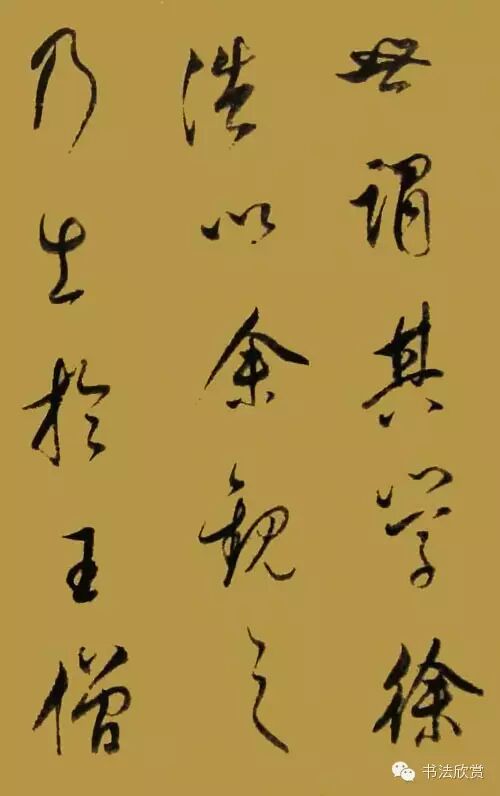 世谓其学徐
浩以余觀之
乃生於王僧
书法欣赏